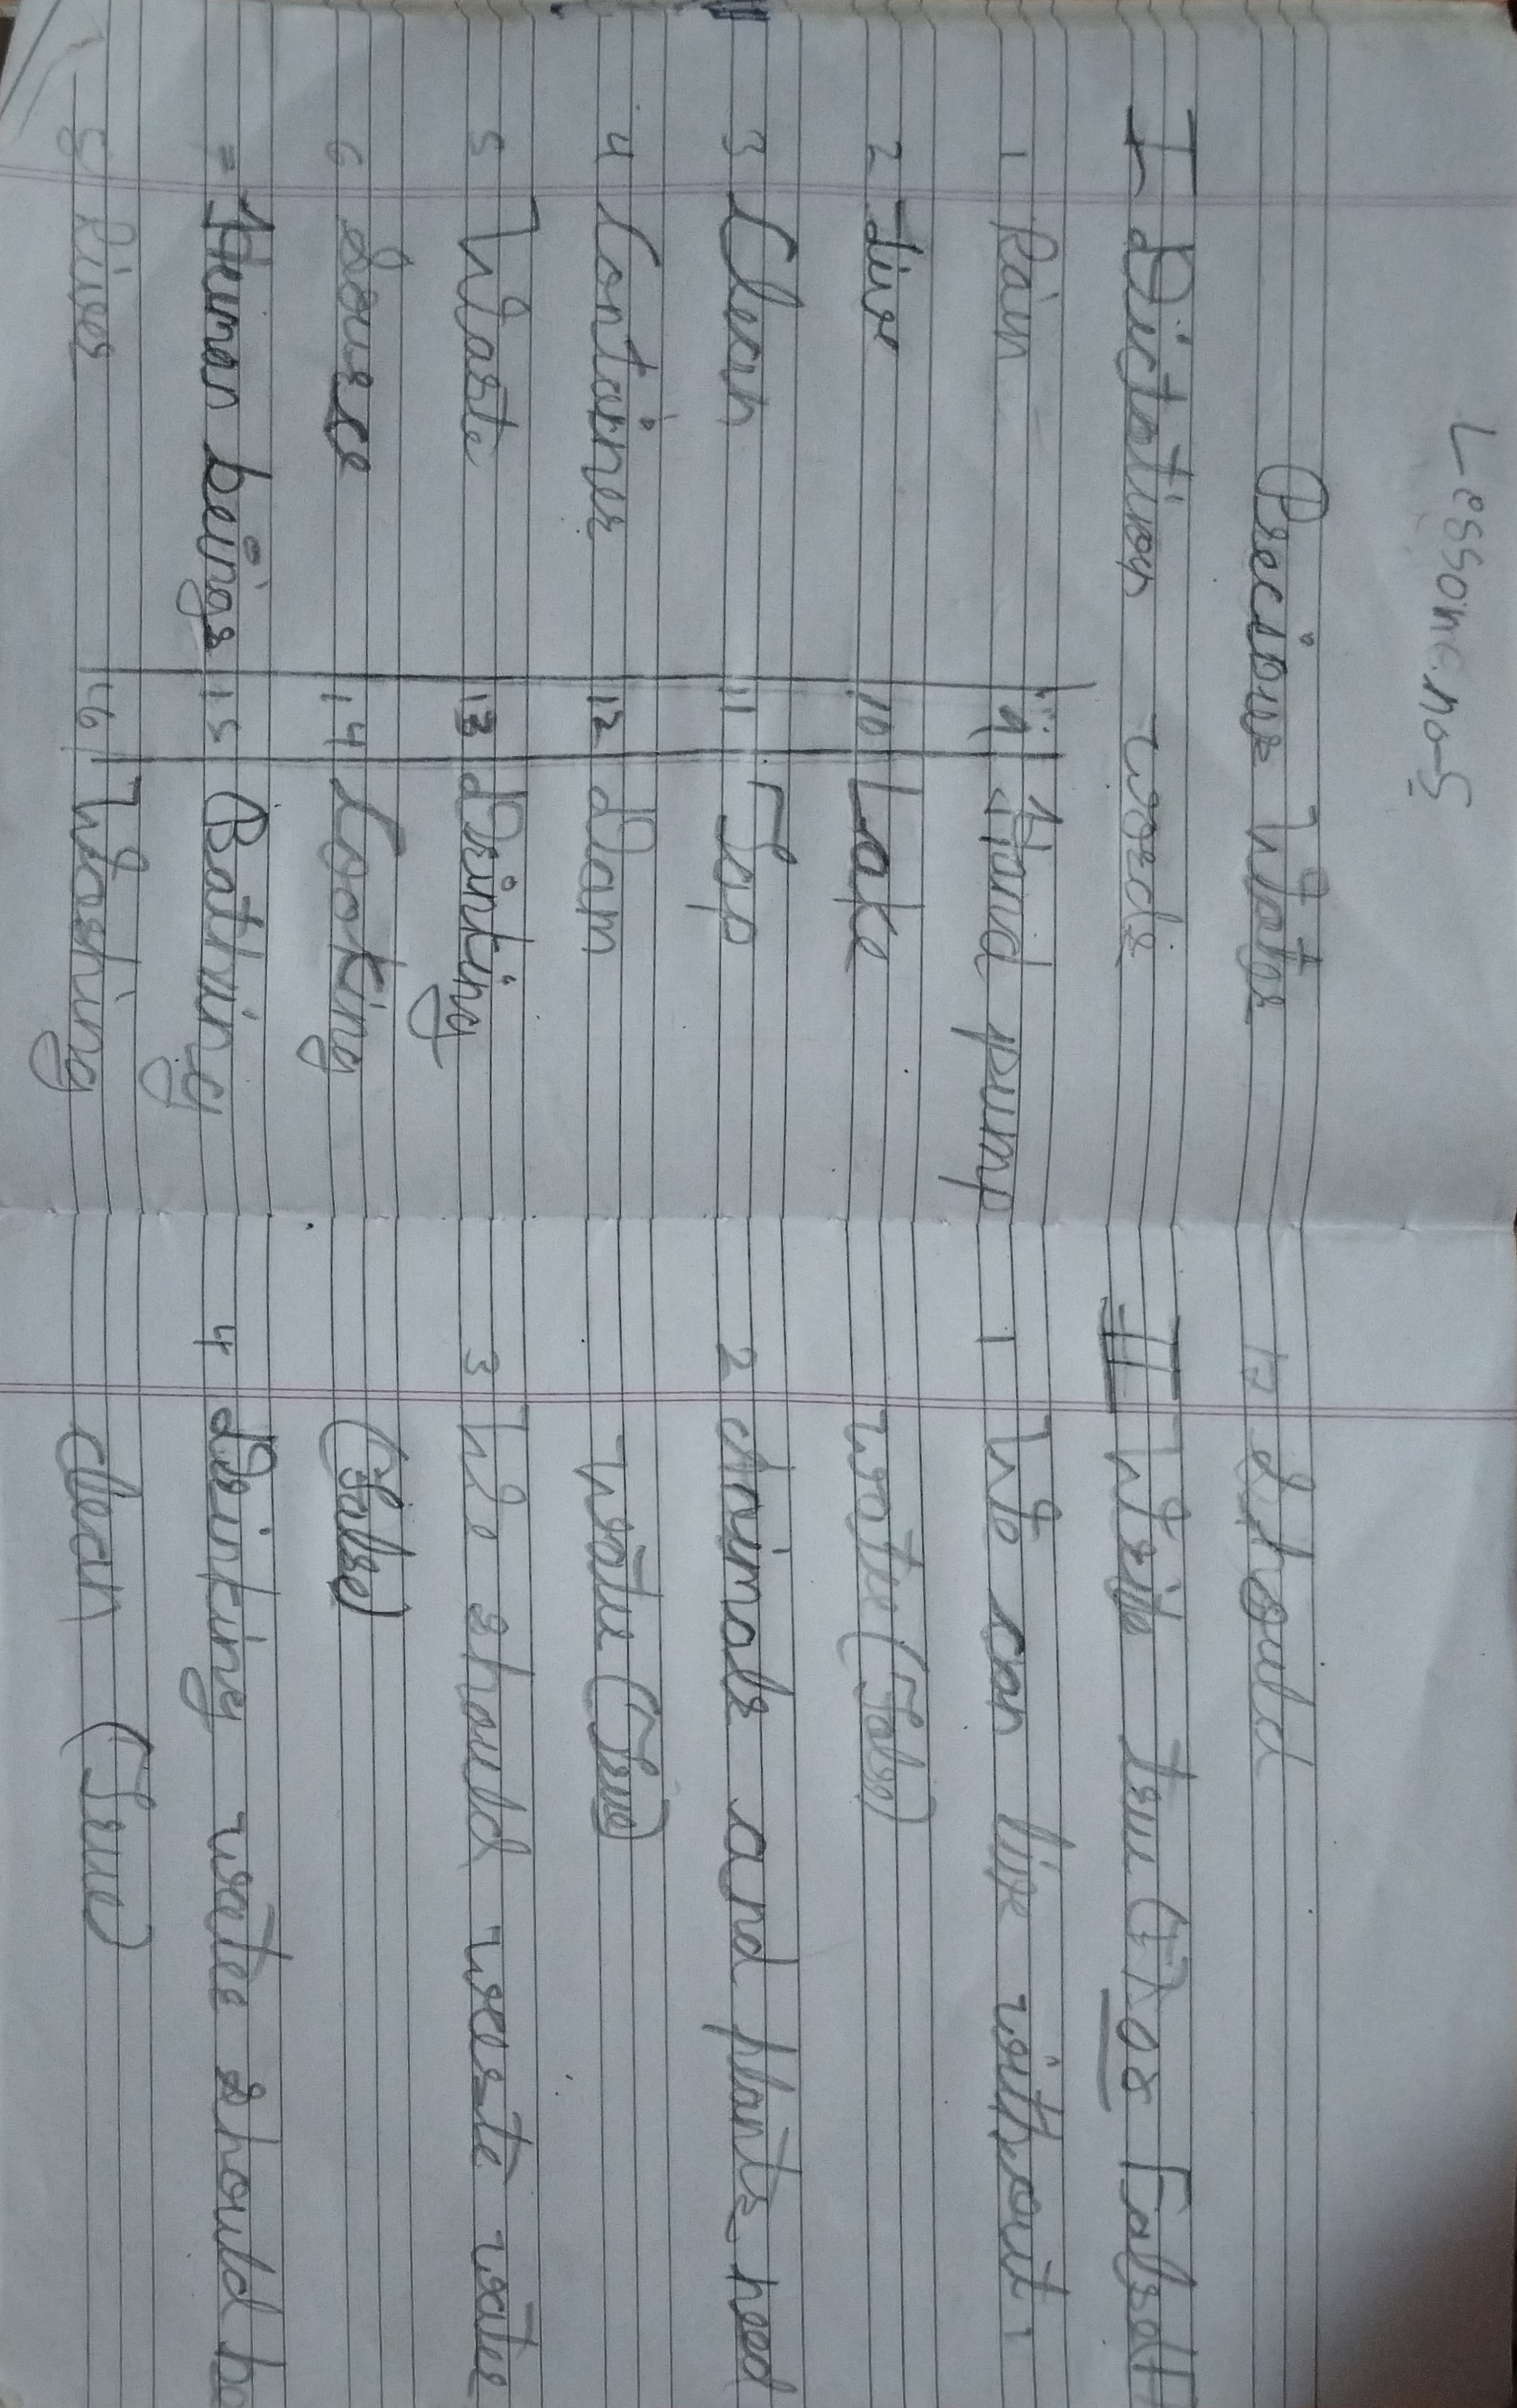 Lessone.no-5
Precious Water
I Dictation words
1 Rain
2 Live
3 Clean
4 Container
5 Waste
6 Source
7 Human beings
8 Rivers
9 Hand pump
10 Lake
11 Tap
12 Dam
13 Drinking
14 Cooking
15 Bathing
16 Washing
17 Should
II Write true (T) or False(F
1 We can live without
water (False)
2 Animals and plants need
water (True)
3 We should waste water
(False)
4 Drinking water should be
clean (True)